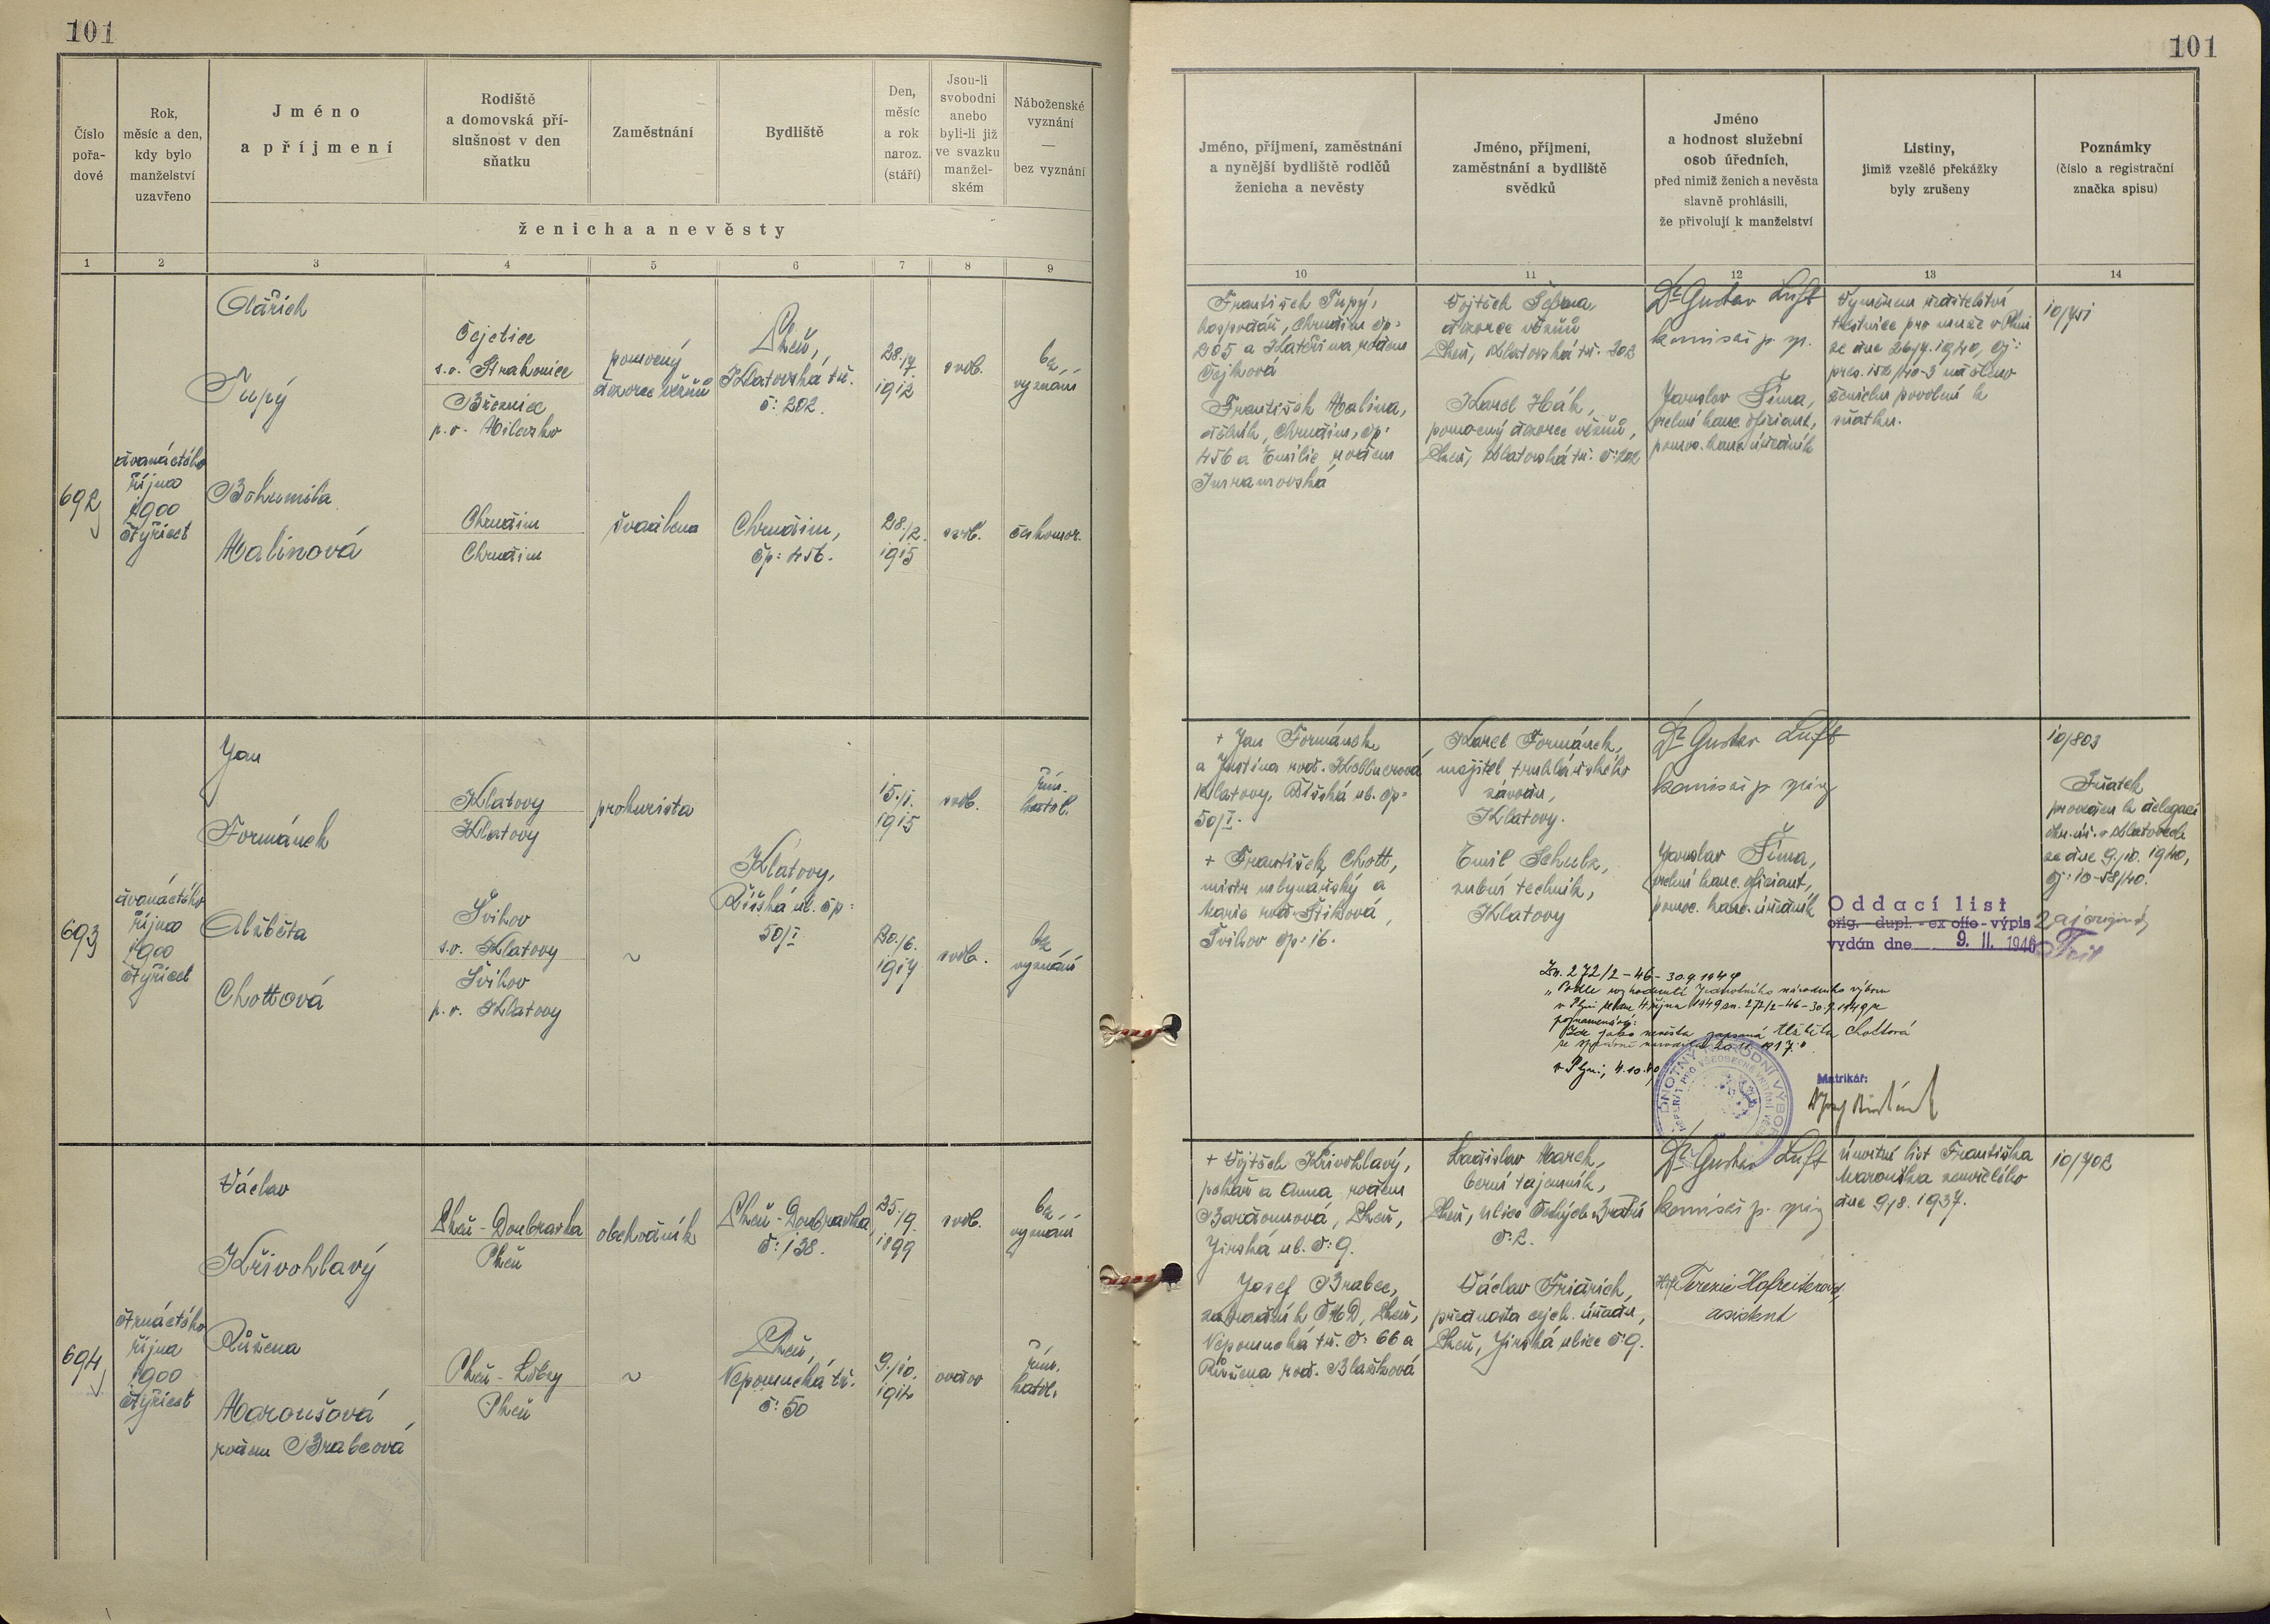 101
101
Číslo pořadové
Rok, měsíc a den, kdy bylo manželství uzavřeno
Jméno a příjmení
Rodiště a domovská příslušnost v den sňatku
Zaměstnání
Bydliště
Den, měsíc a rok naroz. (stáří)
Jsou-li svobodni anebo byli-li již ve svazku manželském
Náboženské vyznání — bez vyznání
ženicha a nevěsty
1 2 3 4 5 6 7 8 9
Jméno, příjmení, zaměstnání a nynější bydliště rodičů ženicha a nevěsty
Jméno, příjmení, zaměstnání a bydliště svědků
Jméno a hodnost služební osob úředních, před nimiž ženich a nevěsta slavně prohlásili, že přivolují k manželství
Listiny, jimiž vzešlé překážky byly zrušeny
Poznámky (číslo a registrační značka spisu)
10 11 12 13 14
692
dvanáctého
října
1900
čtyřicet
Oldřich
Tupý
Čejetice
s.o. Strakonice
Březnice
p.o. Milevsko
pomocný
dozorce vězňů
Plzeň,
Klatovská tř.
č: 202.
28./7.
1912
svob.
bez
vyznání
Bohumila
Malinová
Chrudim
Chrudim
švadlena
Chrudim,
čp: 456.
28./2.
1915
svob.
českomor.
František Tupý,
hospodář, Chrudim čp:
205 a Kateřina rodem
Čejková
František Malina,
dělník, Chrudim, čp:
456 a Emilie rodem
Vojtěch
dozorce vězňů
Plzeň, Klatovská tř. 202
Karel Hák,
pomocný dozorce vězňů,
Plzeň, Klatovská tř. č: 202
Dr Gustav Luft
komisař p. spr.
Jaroslav Šíma,
pomoc. kanc. úředník
Výměrem ředitelství
trestnice pro muže v Plzni
ze dne 26./9. 1940, čj:
pres. 152/40-3 uděleno
ženichu povolení k
sňatku.
10/751
693
dvanáctého
října
1900
čtyřicet
Jan
Formánek
Klatovy
Klatovy
prokurista
15./1.
1915
svob.
řím.
katol.
Klatovy,
Říšská ul. čp:
50/I
Alžběta
Chottová
Švihov
s.o. Klatovy
Švihov
p.o. Klatovy
~
20./6.
1917
svob.
bez
vyznání
+ Jan Formánek
a Justina rod. Kollnerová
Klatovy, Říšská ul. čp:
50/I.
+ František Chott,
mistr mlynářský a
Marie rod. Štiková,
Švihov čp: 16.
Karel Formánek,
majitel truhlářského
závodu,
Klatovy.
Emil Schulz,
zubní technik,
Klatovy
Dr Gustav Luft
komisař p. spr.
Jaroslav Šíma,
pomoc. kanc. úředník
10/803
Sňatek
proveden k delegaci
okr. úř. v Klatovech
ze dne 9./10. 1940,
čj: 10-58/40.
Oddací list
orig. - dupl. - ex offo - výpis
vydán dne 9. II. 1946
Zn. 272/2-46-30.9.1949
„Podle rozhodnutí Jednotného národního výboru
v Plzni ze dne 4. října 1949 zn. 272/2-46-30.9.1949 se
poznamenává:
Zde jako nevěsta zapsaná Alžběta Chottová
v Plzni, 4.10.49
Matrikář:
694
čtrnáctého
října
1900
čtyřicet
Václav
Křivohlavý
Plzeň - Doubravka
Plzeň
obchodník
Plzeň - Doubravka,
č: 138.
25./9.
1899
svob.
bez
vyznání
Růžena
Maroušová
rodem Brabcová
Plzeň - Lobzy
Plzeň
~
Plzeň,
Nepomucká tř.
č: 50
9./10.
1912
ovdov
řím.
katol.
+ Vojtěch Křivohlavý,
pekař a Anna rodem
Plzeň,
Jirská ul. č: 9.
Josef Brabec,
Plzeň,
Nepomucká tř. č: 66 a
Růžena rod. Blašková
Ladislav Marek,
berní tajemník,
Plzeň, ulice Českých Bratří
č: 2.
Václav Friedrich,
přednosta cejch. úřadu,
Plzeň, Jirská ulice č: 9.
Dr Gustav Luft
komisař p. spr.
Terezie Hofreiterová,
asistent
Úmrtní list Františka
Marouška zemřelého
dne 9./8. 1937.
10/702